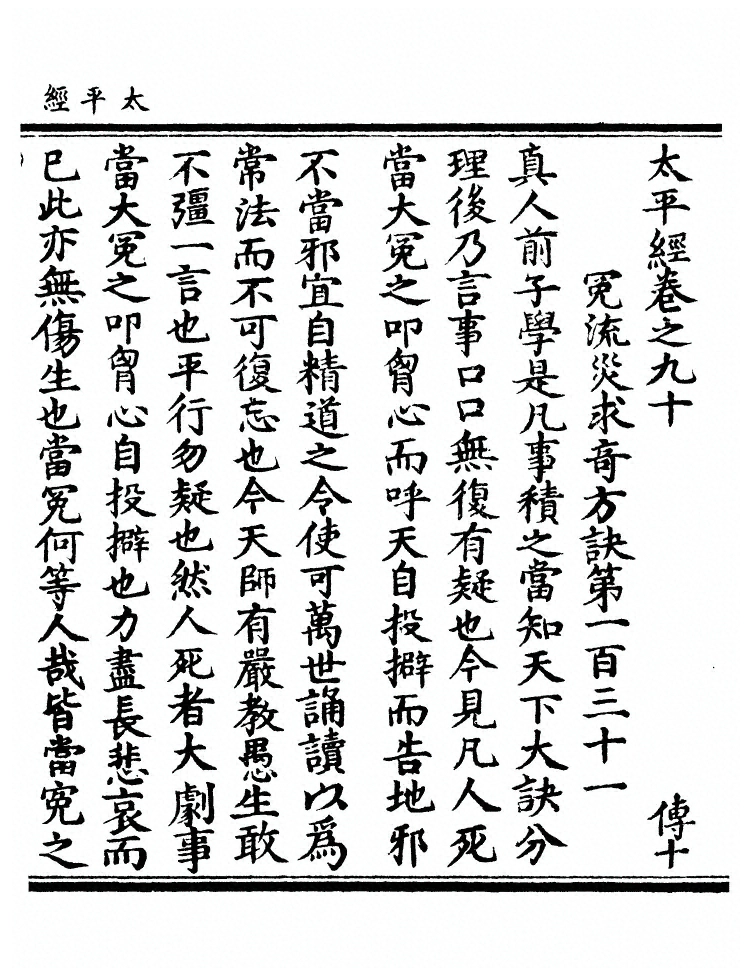 太平經
太平經卷之九十
傳十
冤流災求奇方訣第一百三十一
真人前子學是凡事積之當知天下大訣分
理後乃言事口口無復有疑也今見凡人死
當大冤之叩胷心而呼天自投擗而告地邪
不當邪宜自精道之令使可萬世誦讀以爲
常法而不可復忘也今天師有嚴教愚生敢
不彊一言也平行勿疑也然人死者大劇事
當大冤之叩胷心自投擗也力盡長悲哀而
已此亦無傷生也當冤何等人哉皆當冤之